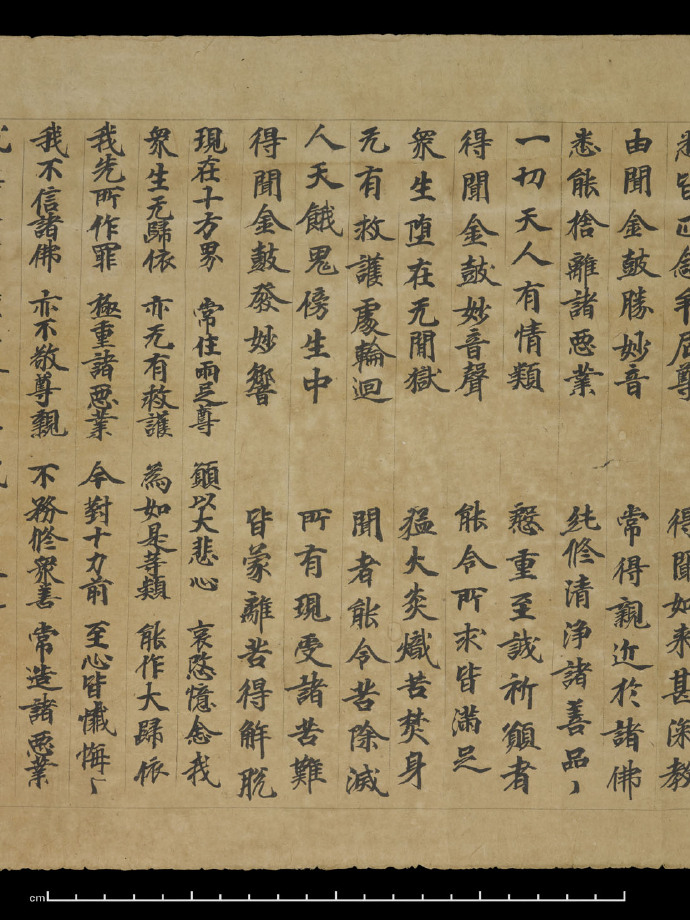 悉皆正念牟尼尊　得聞如来甚深教
由聞金鼓勝妙音　常得親近於諸佛
悉能捨離諸惡業　純修清淨諸善品
一切天人有情類　慇重至誠祈願者
得聞金鼓妙音聲　能令所求皆滿足
衆生墮在无間獄　猛火炎熾苦焚身
无有救護處輪迴　聞者能令苦除滅
人天餓鬼傍生中　所有現受諸苦難
得聞金鼓發妙響　皆蒙離苦得解脫
現在十方界　常住兩足尊　願以大悲心　哀愍憶念我
衆生无歸依　亦无有救護　為如是等類　能作大歸依
我先所作罪　極重諸惡業　今對十力前　至心皆懺悔
我不信諸佛　亦不敬尊親　不務修衆善　常造諸惡業
cm